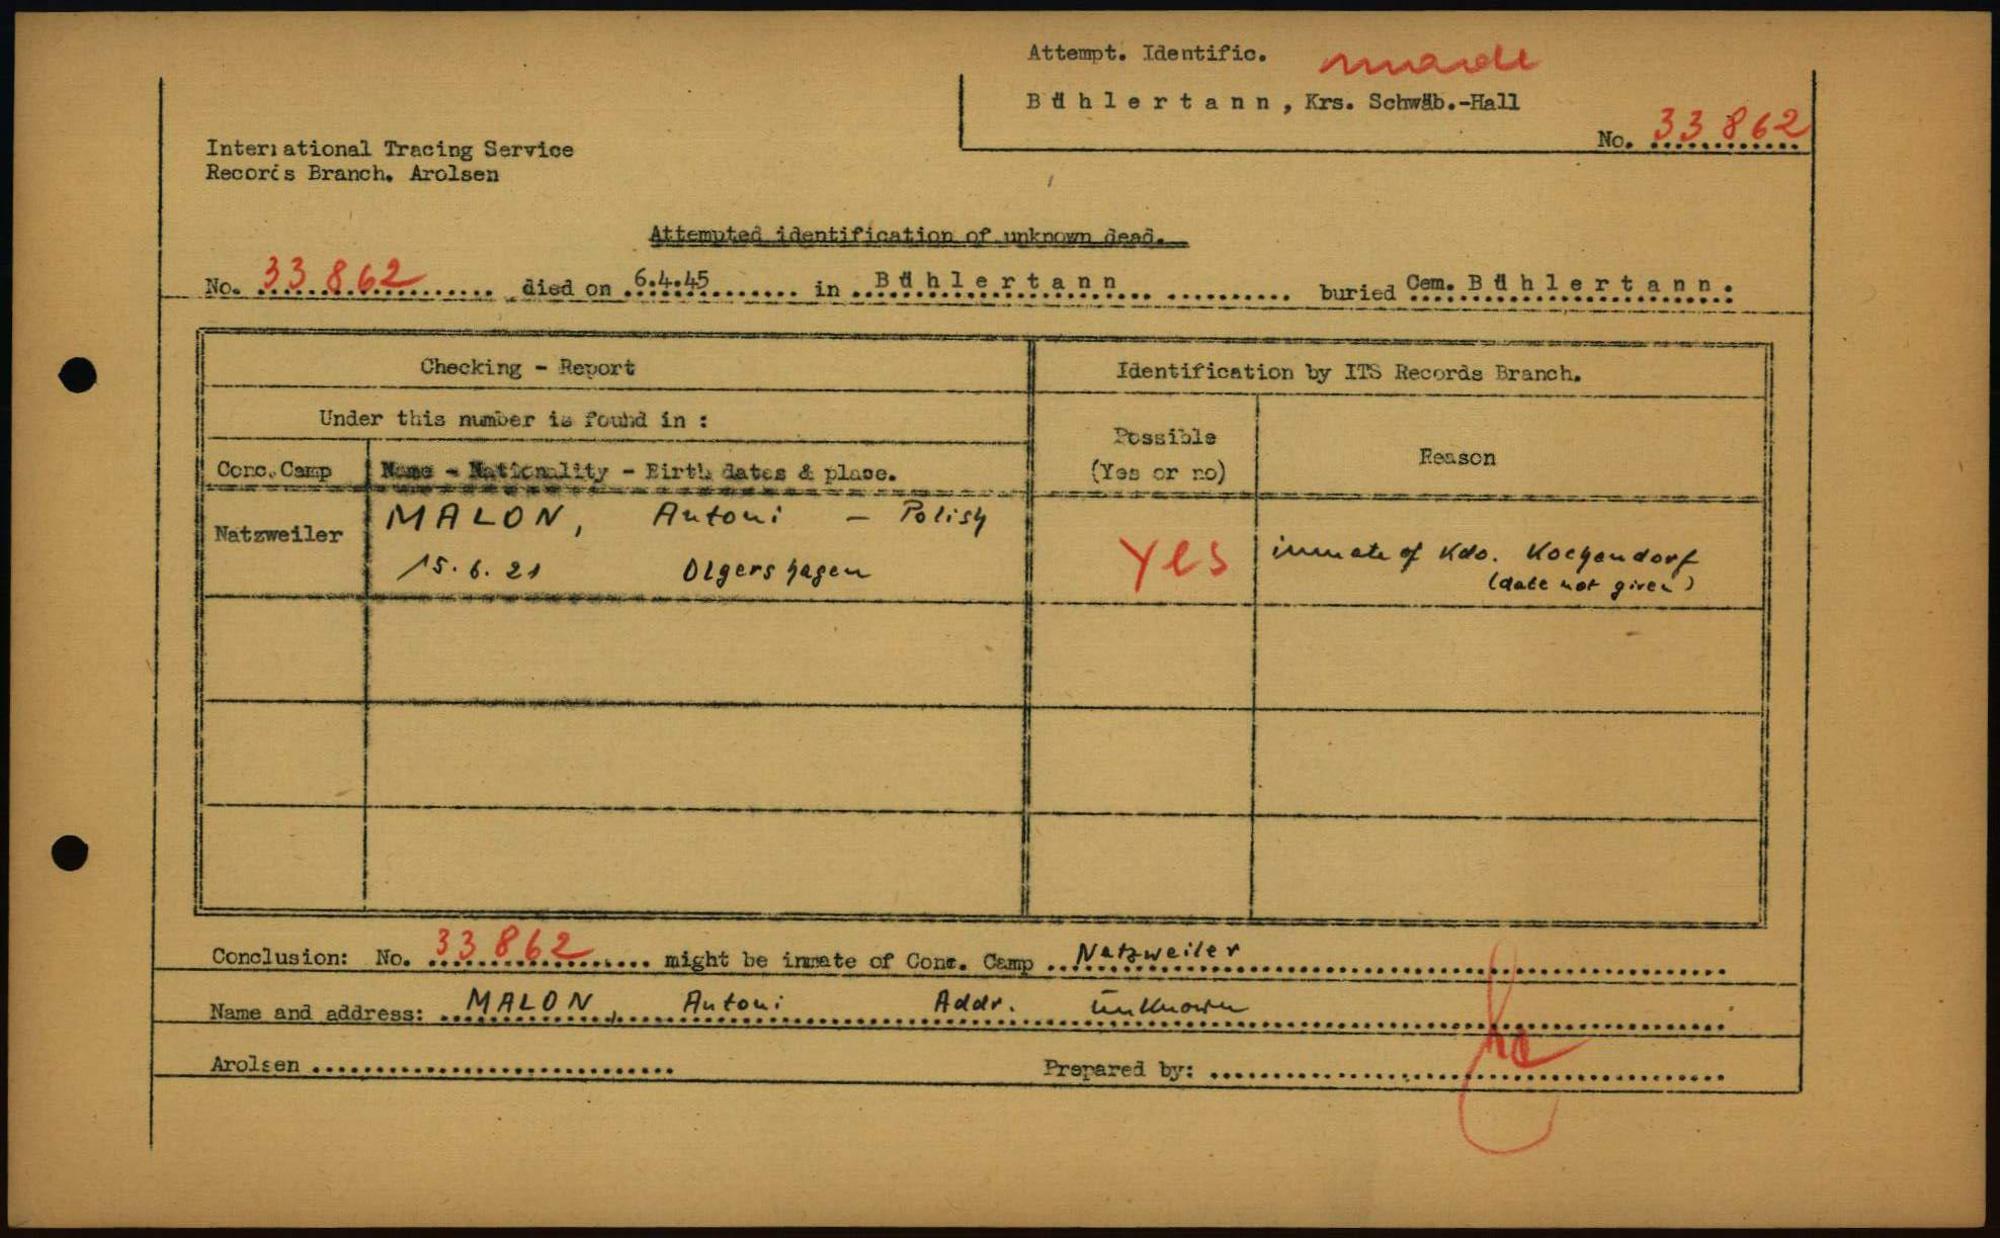 Attempt. Identific. made
Bühlertann, Krs. Schwäb.-Hall
No. 33 862
International Tracing Service
Records Branch. Arolsen
Attempted identification of unknown dead.
No. 33 862 died on 6.4.45 in Bühlertann buried Cem. Bühlertann.
Checking - Report
Identification by ITS Records Branch.
Under this number is found in :
Possible
(Yes or no)
Reason
Conc. Camp
Name - Nationality - Birth dates & place.
Natzweiler
MALON, Antoni - Polish
15.6.21 Olgershagen
Yes
inmate of Kdo. Kochendorf
(date not given)
Conclusion: No. 33 862 might be inmate of Conc. Camp Natzweiler
Name and address: MALON, Antoni Addr. unknown
Arolsen
Prepared by: